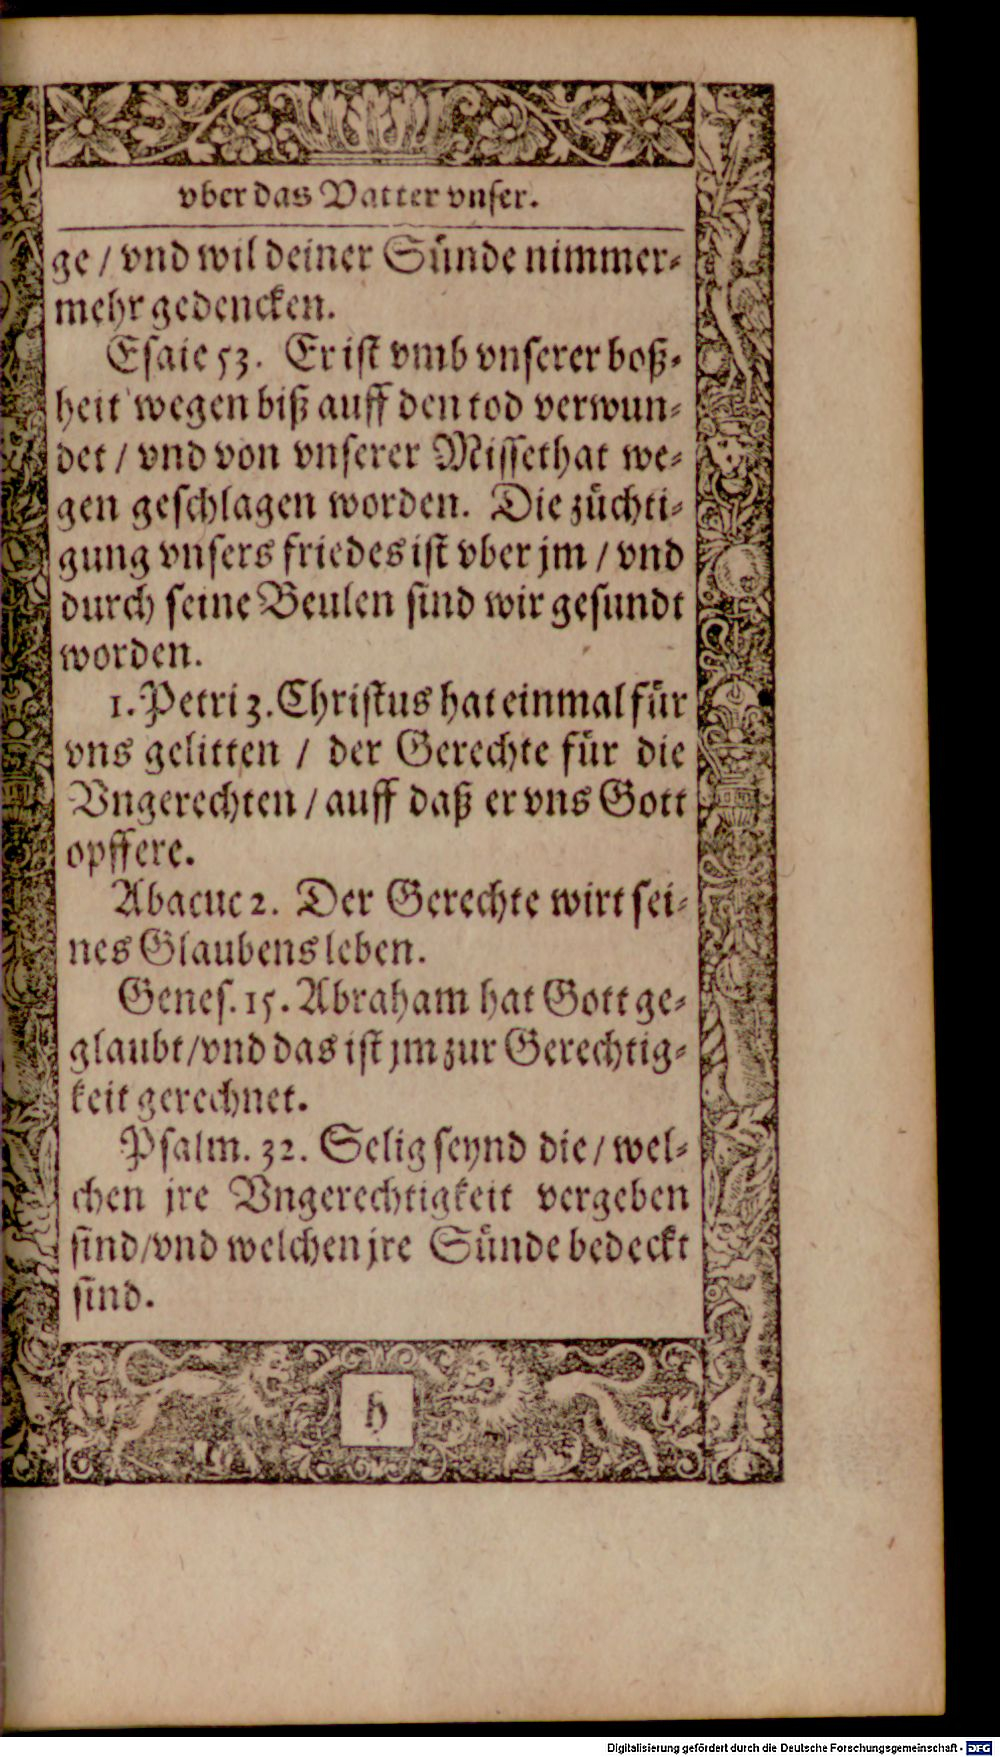 vber das Vatter vnser.
ge / vnd wil deiner Sünde nimmer-
mehr gedencken.
Esaie 53. Er ist vmb vnserer boß-
heit wegen biß auff den tod verwun-
det / vnd von vnserer Missethat we-
gen geschlagen worden. Die züchti-
gung vnsers friedes ist vber jm / vnd
durch seine Beulen sind wir gesundt
worden.
1. Petri 3. Christus hat einmal für
vns gelitten / der Gerechte für die
Vngerechten / auff daß er vns Gott
opffere.
Abacuc 2. Der Gerechte wirt sei-
nes Glaubens leben.
Genes. 15. Abraham hat Gott ge-
glaubt/vnd das ist jm zur Gerechtig-
keit gerechnet.
Psalm. 32. Selig seynd die / wel-
chen jre Vngerechtigkeit vergeben
sind/vnd welchen jre Sünde bedeckt
sind.
h
Digitalisierung gefördert durch die Deutsche Forschungsgemeinschaft - DFG